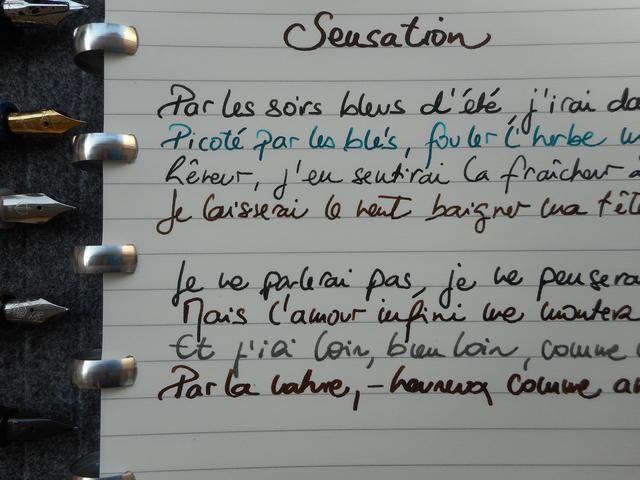 Sensation
Par les soirs bleus d'été, j'irai da
Picoté par les blés, fouler l'herbe
Rêveur, j'en sentirai la fraîcheur a
Je laisserai le vent baigner ma têt
Je ne parlerai pas, je ne penserai
Mais l'amour infini me montera
Et j'irai loin, bien loin, comme
Par la nature, - heureux comme